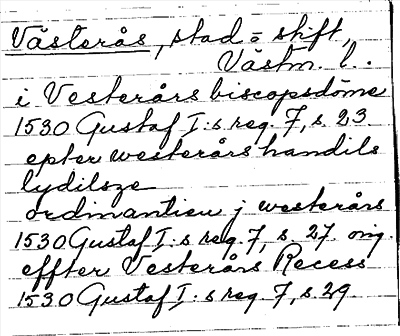 Västerås, stad = stift,
Västm. l.
i Vesterårs biscopsdöme
1530 Gustaf I:s reg. 7, s. 23
epter westerårs handils
lydilsze
ordinantien j westerårs
1530 Gustaf I:s reg. 7, s. 27. orig.
effter Vesterårs Recess
1530 Gustaf I:s reg. 7, s. 29.